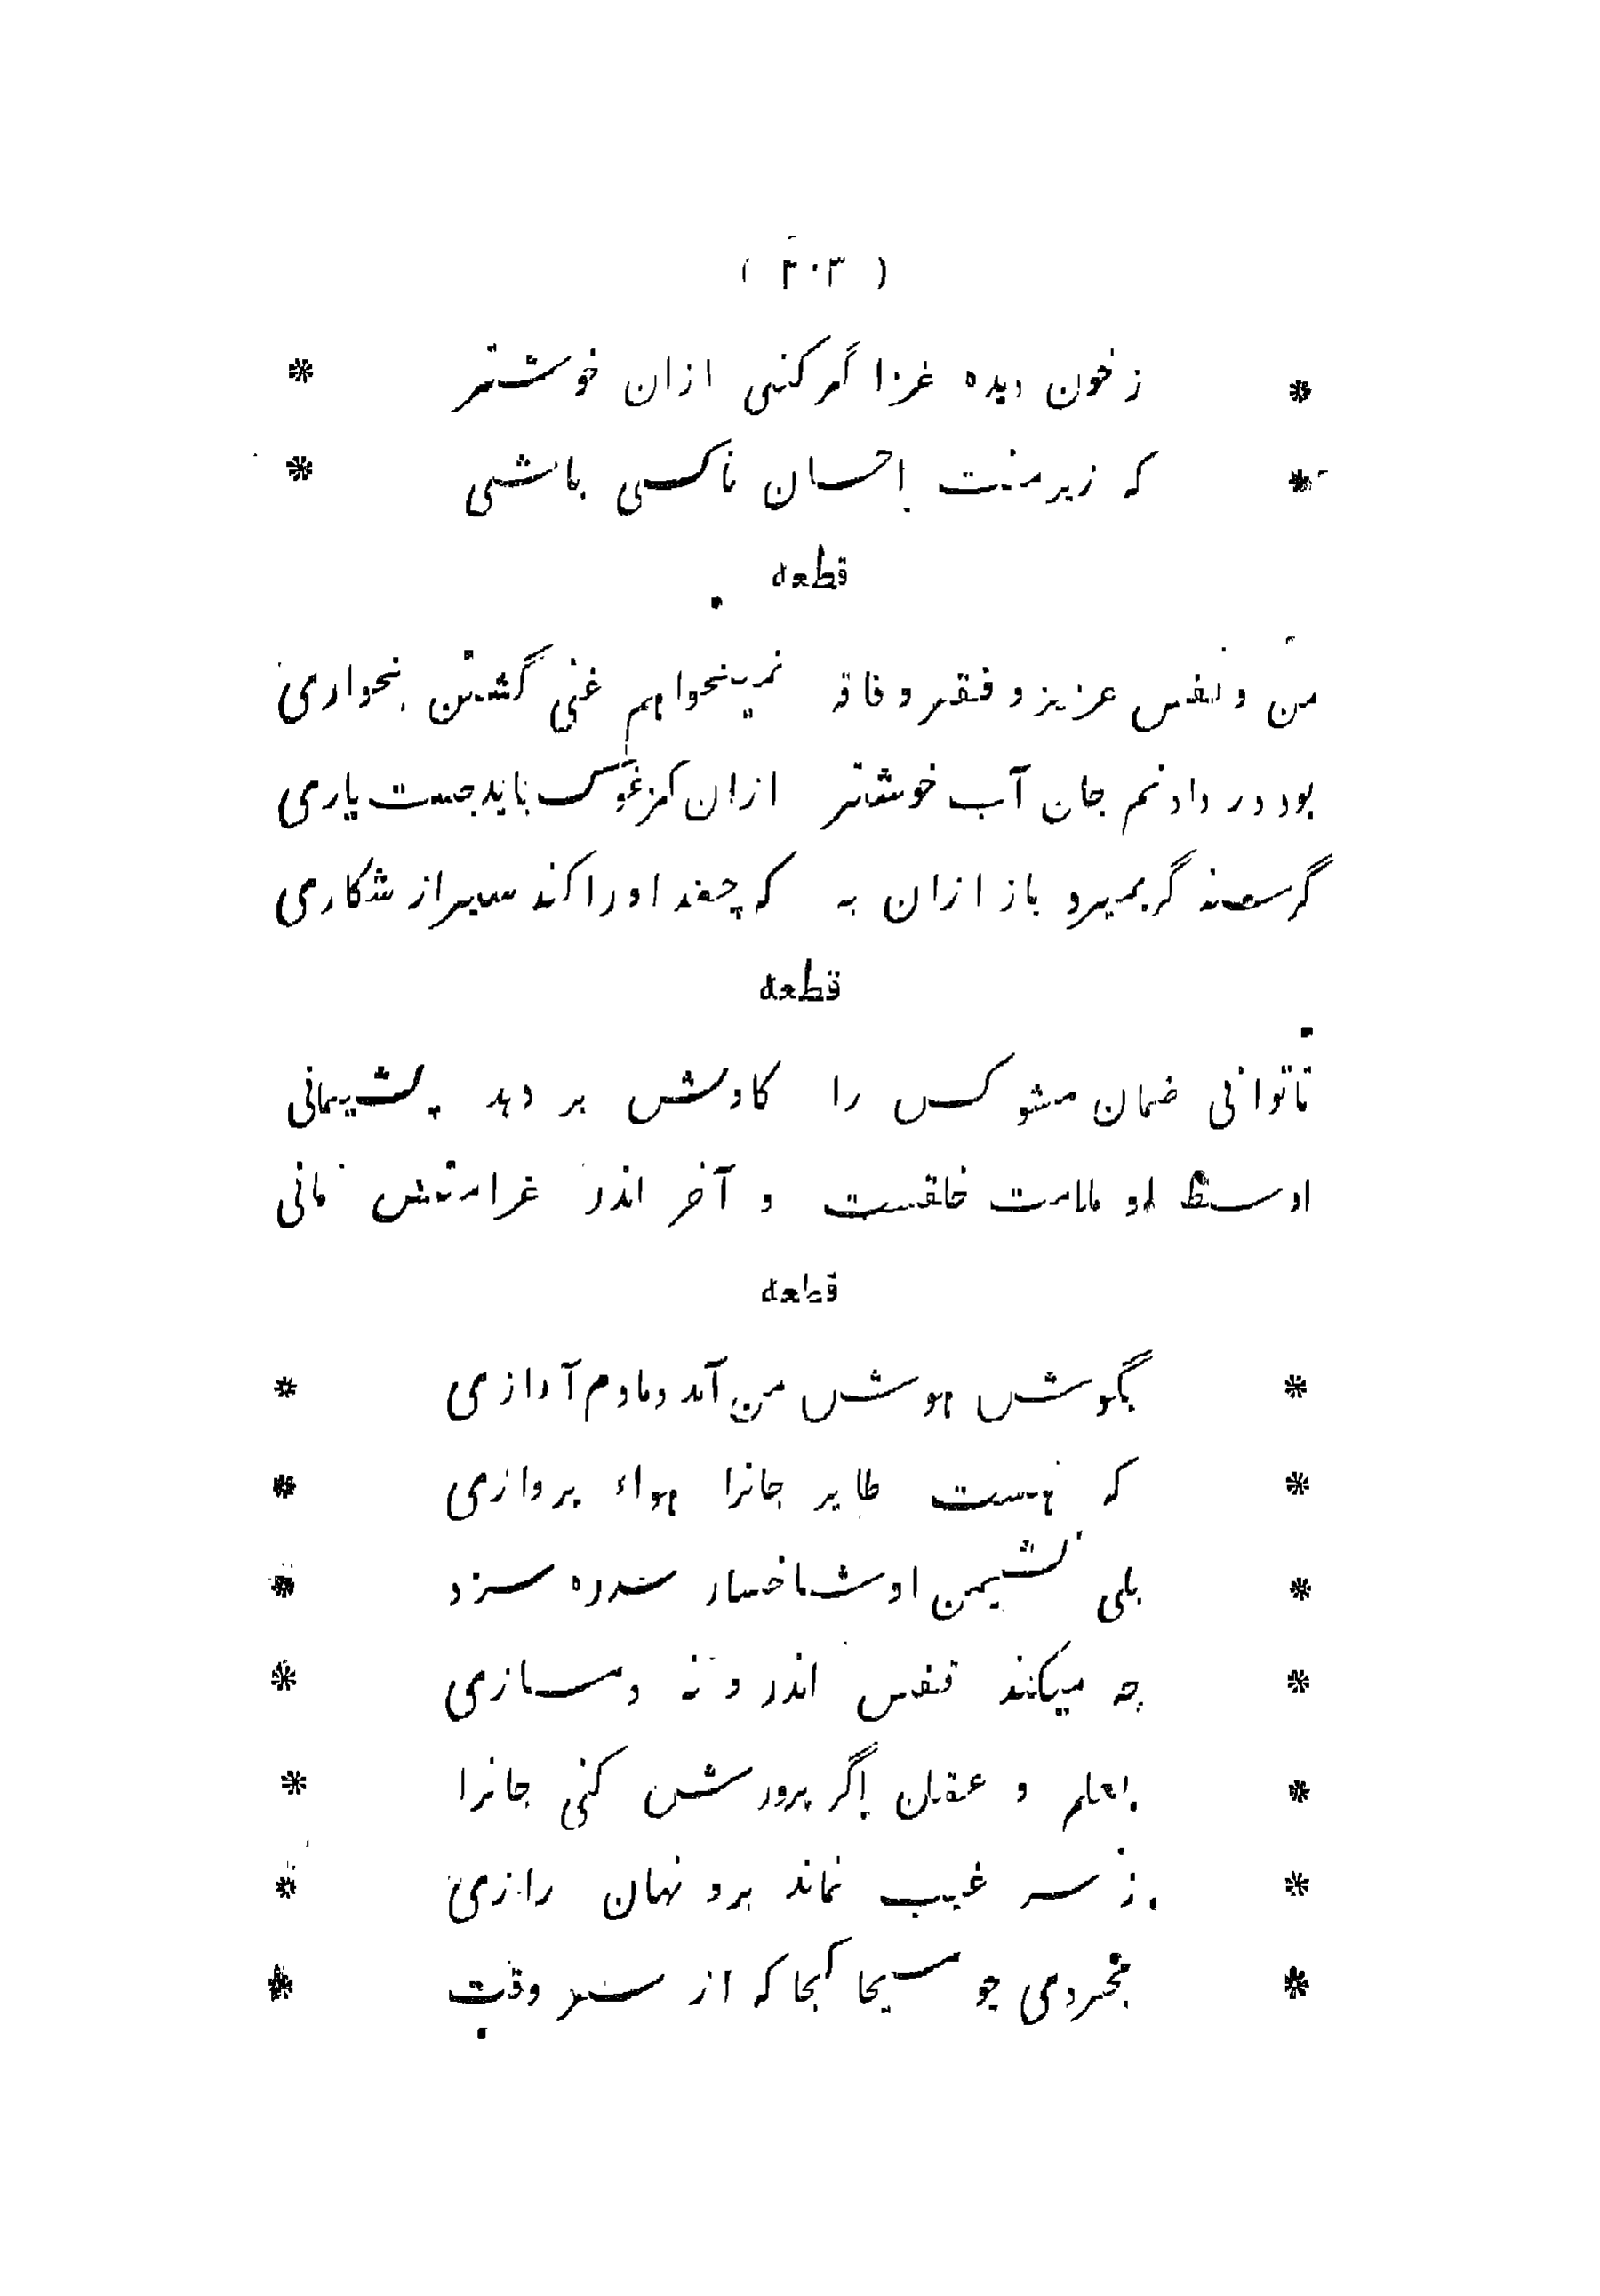 ( ۲۰۳ )
* زخون دیده غزا گر کنی ازان خوشتر *
* که زیر منت احسان ناکسی باشی *
قطعه
من و نفس عزیز و فقر و فاقه نمیخواهم غنی گشتن بخواری
بود در دادنم جان آب خوشتر ازان کز غوک باید جست یاری
گرسنه گر بمیرد باز ازان به که چغد او را کند سیر از شکاری
قطعه
تاتوانی ضمان مشو کس را کاولش بر دهد پشیمانی
اوسط او ملامت خلقست و آخر اندر غرامتش مانی
قطعه
* بگوش هوش من آمد دمادم آوازی *
* که هست طایر جانرا هواء پروازی *
* بلی نشیمن او شاخسار سدره سزد *
* چه میکند قفس اندر و نه دمسازی *
* بعلم و عقل اگر پرورش کنی جانرا *
* ز سر غیب نماند برو نهان رازی *
* مجردی چو مسیحا کجا که از سر وقت *